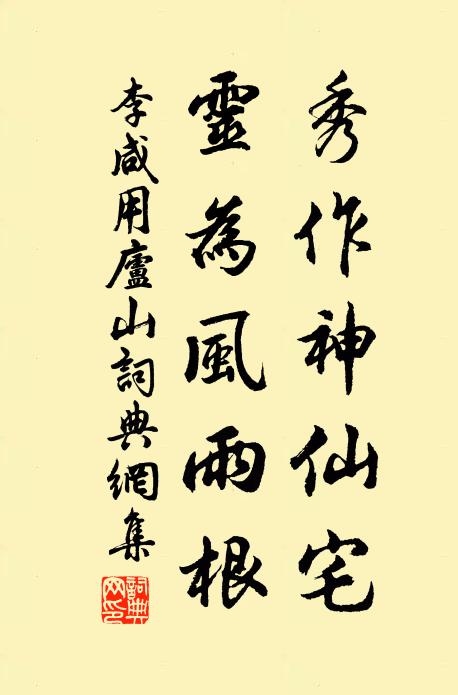 秀作神仙宅
靈為風雨根
李咸用廬山詞典網集
詞典網印